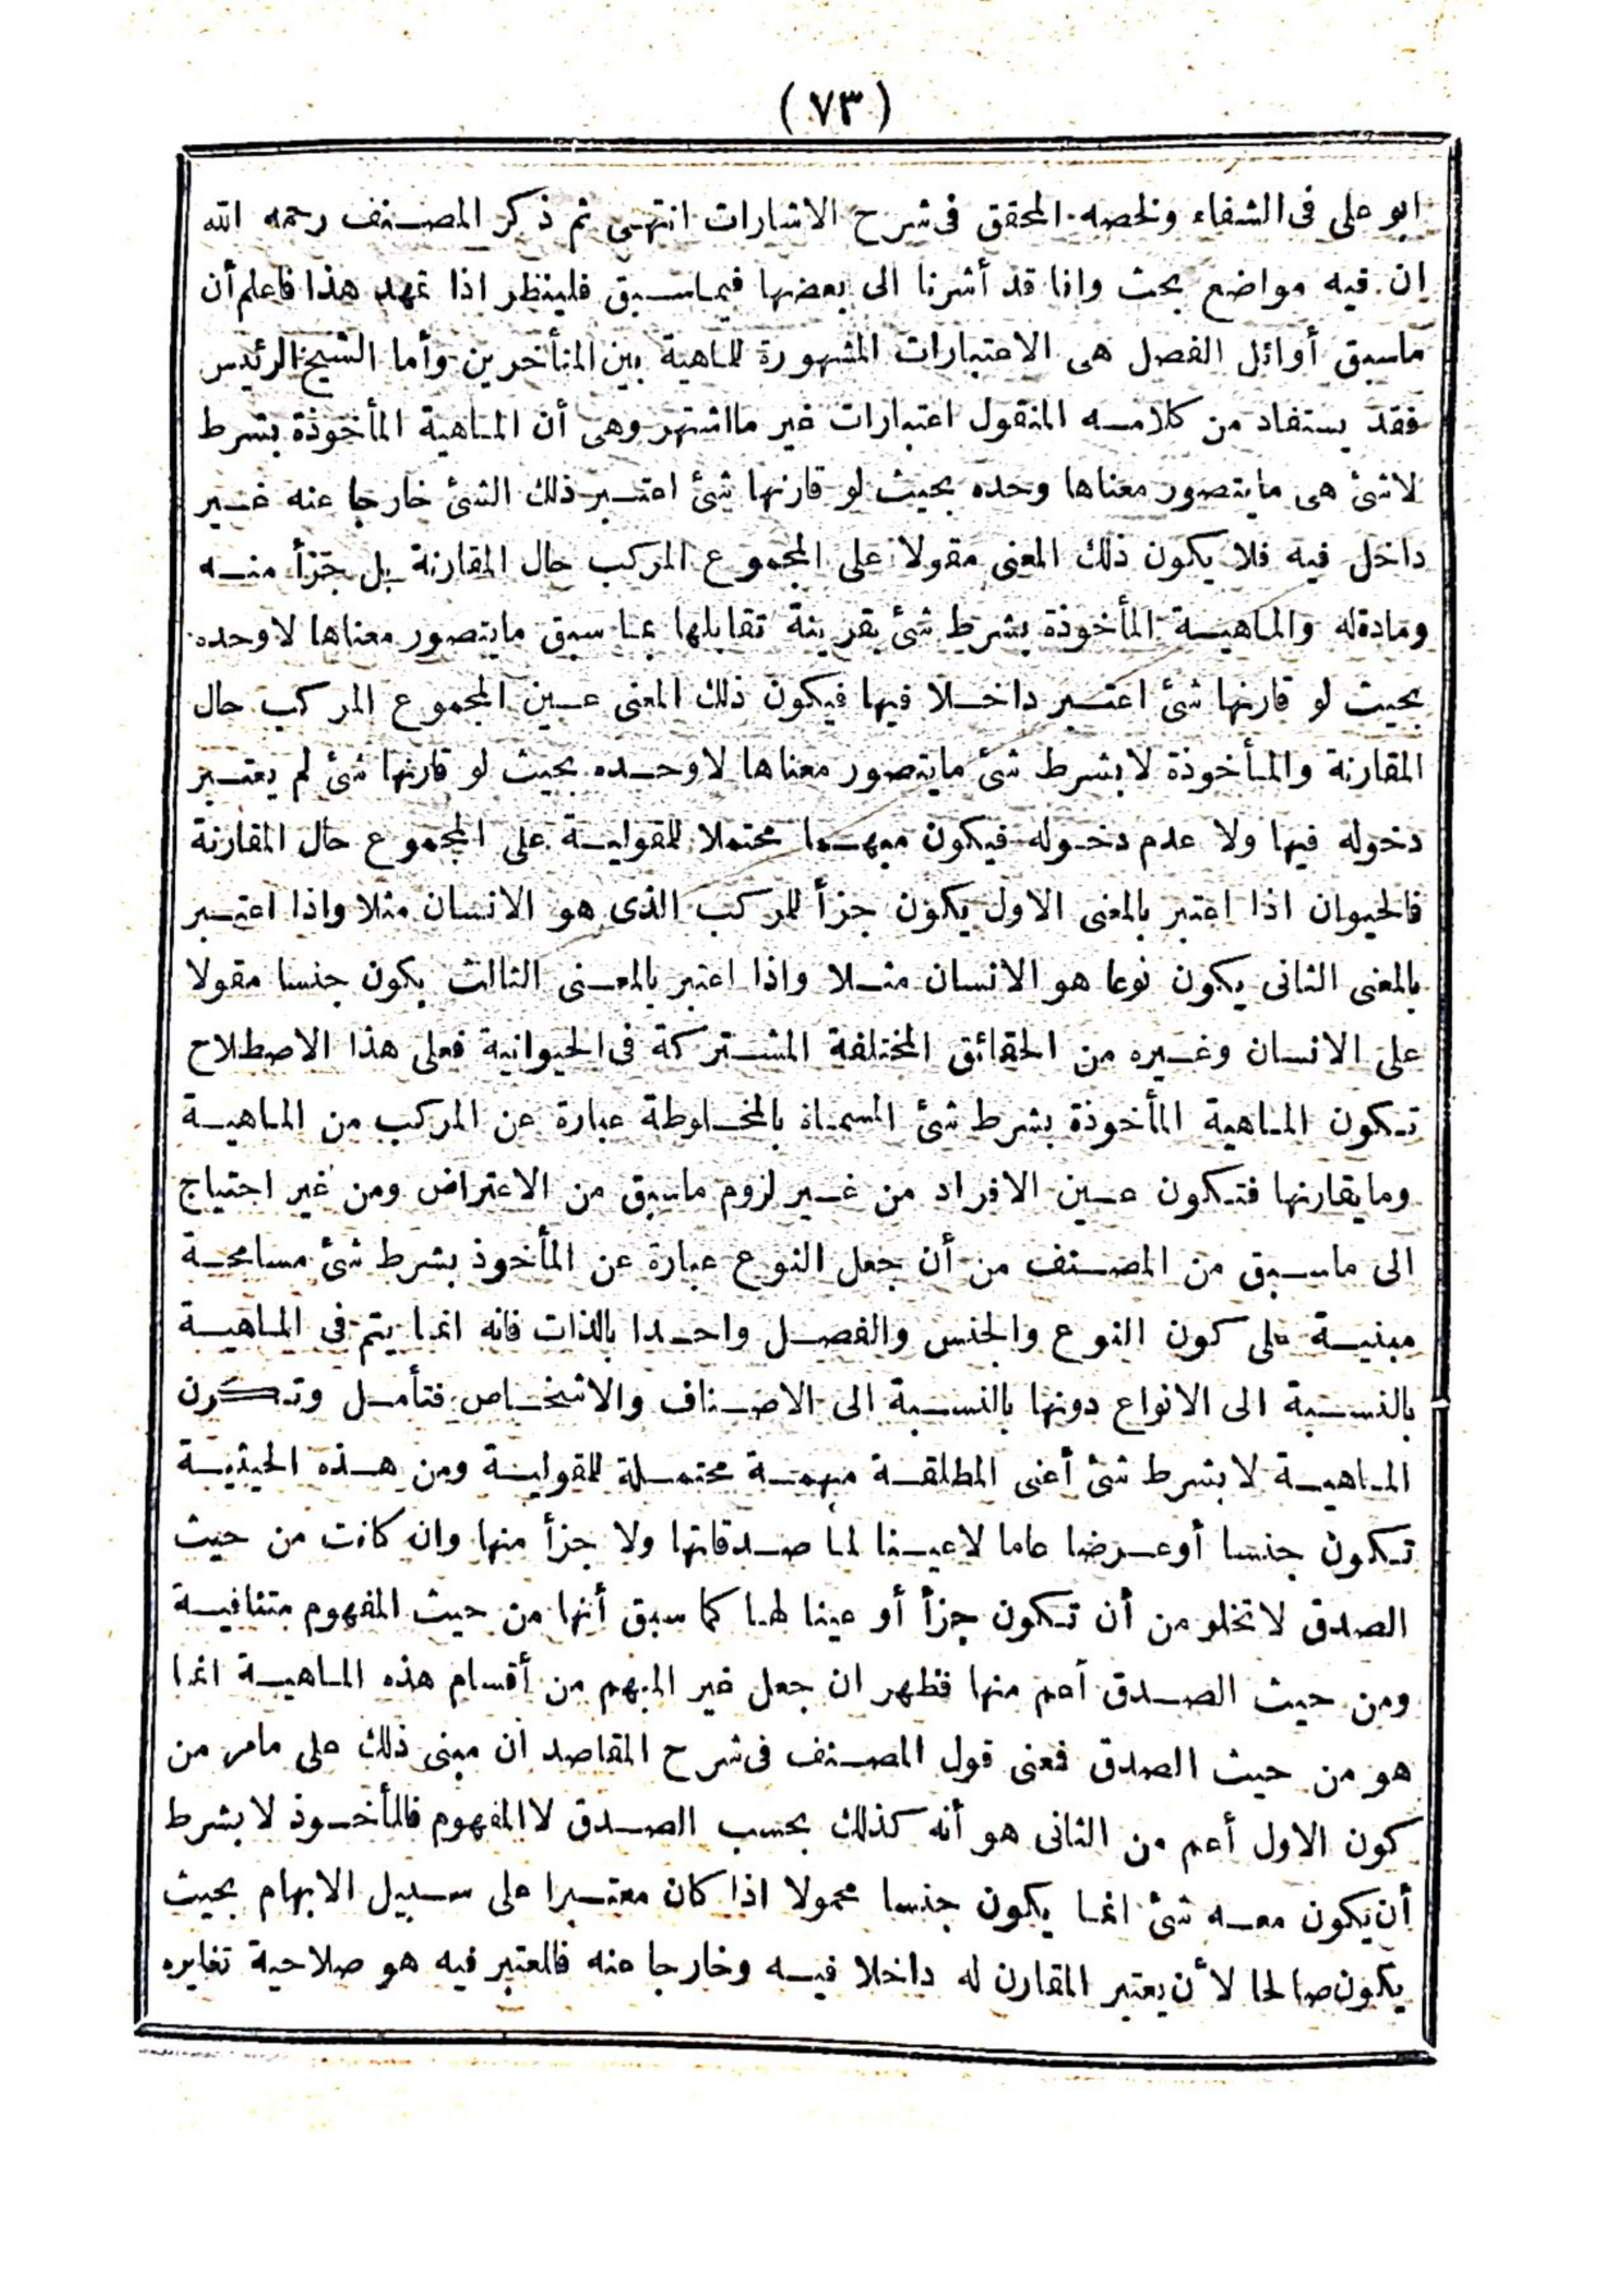 (٧٣)
ابو على فى الشفاء ولخصه المحقق فى شرح الاشارات انتهى ثم ذكر المصنف رحمه الله
ان فيه مواضع بحث وانا قد أشرنا الى بعضها فيما سبق فلينظر اذا تمهد هذا فاعلم أن
ماسبق أوائل الفصل هى الاعتبارات المشهورة للماهية بين المتأخرين وأما الشيخ الرئيس
فقد يستفاد من كلامه المنقول اعتبارات غير مااشتهر وهى أن الماهية المأخوذة بشرط
لاشئ هى مايتصور معناها وحده بحيث لو قارنها شئ اعتبر ذلك الشئ خارجا عنه غير
داخل فيه فلا يكون ذلك المعنى مقولا على المجموع المركب حال المقارنة بل جزأ منه
ومادة له والماهية المأخوذة بشرط شئ بقرينة تقابلها بما سبق مايتصور معناها لاوحده
بحيث لو قارنها شئ اعتبر داخلا فيها فيكون ذلك المعنى عين المجموع المركب حال
المقارنة والمأخوذة لابشرط شئ مايتصور معناها لاوحده بحيث لو قارنها شئ لم يعتبر
دخوله فيها ولا عدم دخوله فيكون مبهما محتملا للمقولية على المجموع حال المقارنة
فالحيوان اذا اعتبر بالمعنى الاول يكون جزأ للمركب الذى هو الانسان مثلا واذا اعتبر
بالمعنى الثانى يكون نوعا هو الانسان مثلا واذا اعتبر بالمعنى الثالث يكون جنسا مقولا
على الانسان وغيره من الحقائق المختلفة المشتركة فى الحيوانية فعلى هذا الاصطلاح
تكون الماهية المأخوذة بشرط شئ المسماة بالمخلوطة عبارة عن المركب من الماهية
ومايقارنها فتكون عين الافراد من غير لزوم ماسبق من الاعتراض ومن غير احتياج
الى ماسبق من المصنف من أن جعل النوع عبارة عن المأخوذ بشرط شئ مسامحة
مبنية على كون النوع والجنس والفصل واحدا بالذات فانه انما يتم فى الماهية
بالنسبة الى الانواع دونها بالنسبة الى الاصناف والاشخاص فتأمل وتكون
الماهية لابشرط شئ أعنى المطلقة مبهمة محتملة للمقولية ومن هذه الحيثية
تكون جنسا أوعرضا عاما لاعينا لما صدقاتها ولا جزأ منها وان كانت من حيث
الصدق لاتخلو من أن تكون جزأ أو عينا لها كما سبق أنها من حيث المفهوم متنافية
ومن حيث الصدق أعم منها فظهر ان جعل غير المبهم من أقسام هذه الماهية انما
هو من حيث الصدق فمعنى قول المصنف فى شرح المقاصد ان مبنى ذلك على مامر من
كون الاول أعم من الثانى هو أنه كذلك بحسب الصدق لاالمفهوم فالمأخوذ لابشرط
أن يكون معه شئ انما يكون جنسا محمولا اذا كان معتبرا على سبيل الابهام بحيث
يكون صالحا لأن يعتبر المقارن له داخلا فيه وخارجا عنه فالمعتبر فيه هو صلاحية تغايره